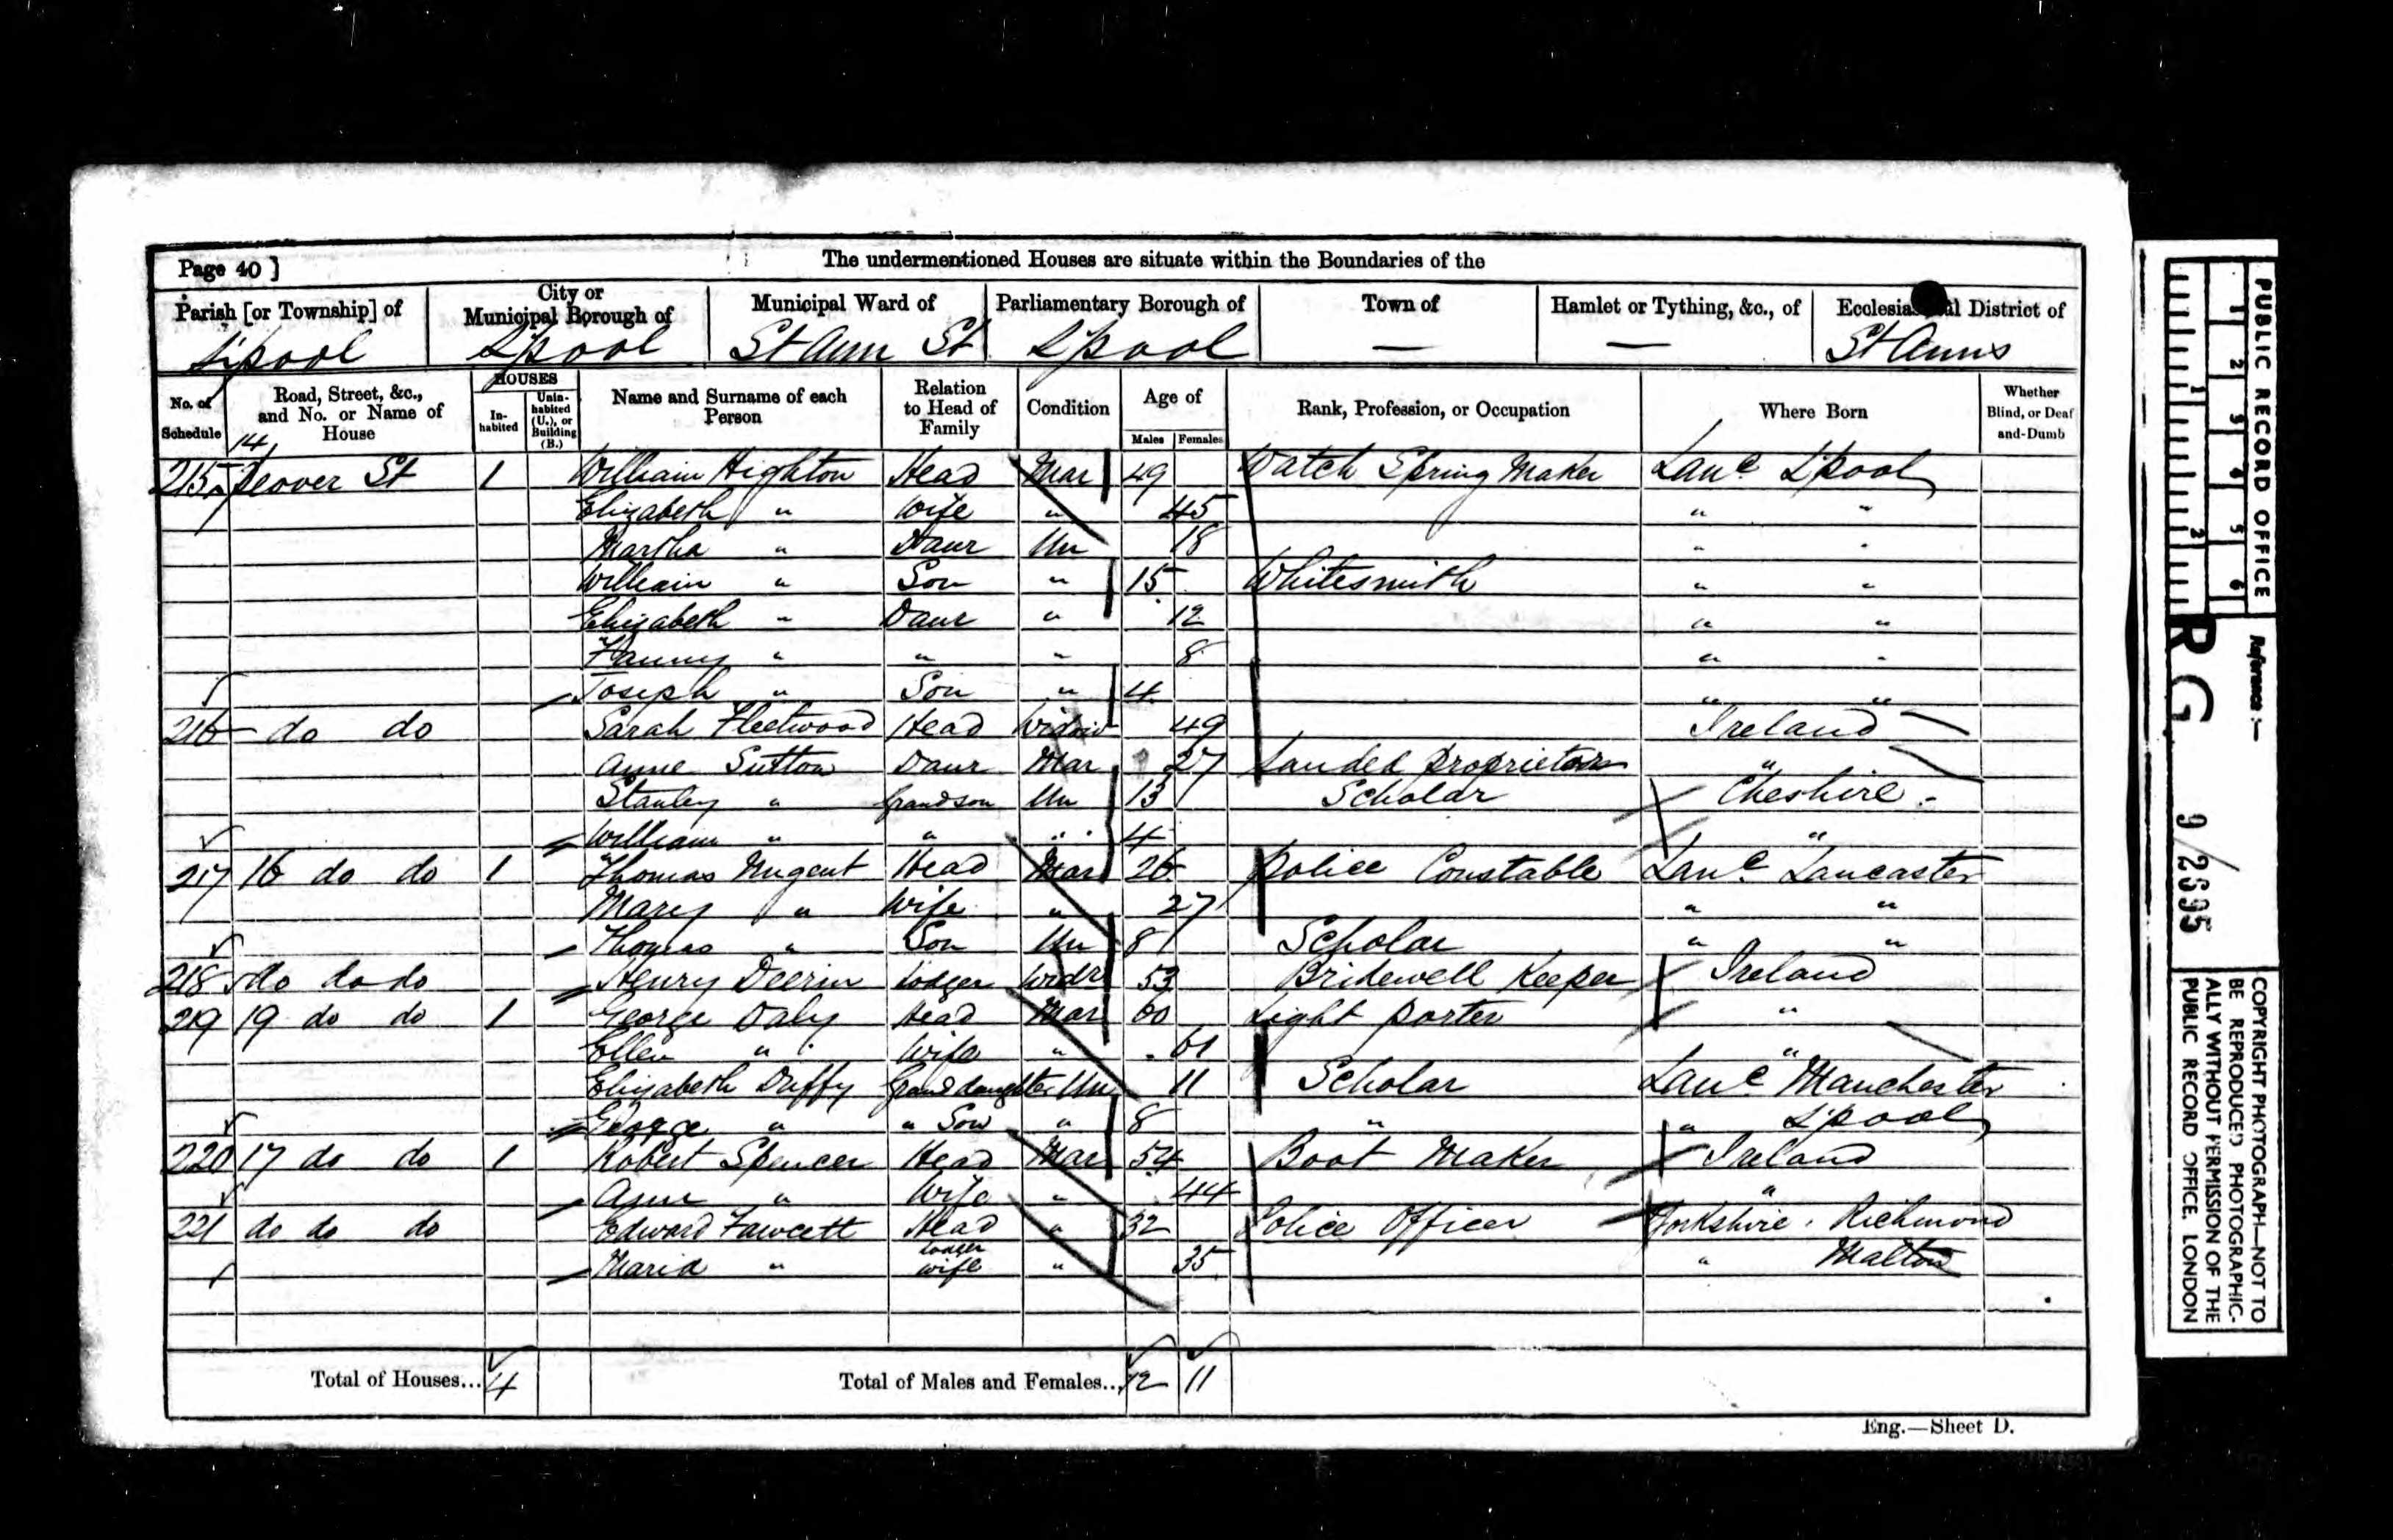 Page 40 ]
The undermentioned Houses are situate within the Boundaries of the
Parish [or Township] of
City or Municipal Borough of
Municipal Ward of
Parliamentary Borough of
Town of
Hamlet or Tything, &c., of
Ecclesiastical District of
L'pool L'pool St Ann St L'pool — — St Anns
No. of Schedule
Road, Street, &c., and No. or Name of House
HOUSES
In-habited
Unin-habited (U.), or Building (B.)
Name and Surname of each Person
Relation to Head of Family
Condition
Age of
Males Females
Rank, Profession, or Occupation
Where Born
Whether Blind, or Deaf-and-Dumb
14
215 Peover St 1 William Highton Head Mar 49 Watch Spring Maker Lanc L'pool
Elizabeth " Wife " 45 " "
Martha " Daur Un 18 " "
William " Son " 15 Whitesmith " "
Elizabeth " Daur " 12 " "
Fanny " " " 8 " "
Joseph " Son " 4 " "
216 do do Sarah Fleetwood Head Widow 49 Ireland
Anne Sutton Daur Mar 27 Landed Proprietor "
Stanley " Grandson Un 13 Scholar Cheshire
William " " " 4 "
217 16 do do 1 Thomas Nugent Head Mar 26 Police Constable Lanc Lancaster
Mary " Wife " 27 " "
Thomas " Son Un 8 Scholar " "
218 do do do Henry Deerin Lodger Widr 53 Bridewell Keeper Ireland
219 19 do do 1 George Daly Head Mar 60 Light Porter "
Ellen " Wife " 61 "
Elizabeth Duffy Granddaughter Un 11 Scholar Lanc Manchester
George " " Son " 8 " " L'pool
220 17 do do 1 Robert Spencer Head Mar 54 Boot Maker Ireland
Anne " Wife " 44 "
221 do do do Edward Fawcett Head " 32 Police Officer Yorkshire Richmond
Lodger
Maria " Wife " 35 " Malton
Total of Houses... 4
Total of Males and Females... 12 11
Eng.—Sheet D.
PUBLIC RECORD OFFICE
1 2 3 4 5 6
1 2
Reference :—
RG 9/2695
COPYRIGHT PHOTOGRAPH—NOT TO
BE REPRODUCED PHOTOGRAPHIC-
ALLY WITHOUT PERMISSION OF THE
PUBLIC RECORD OFFICE, LONDON